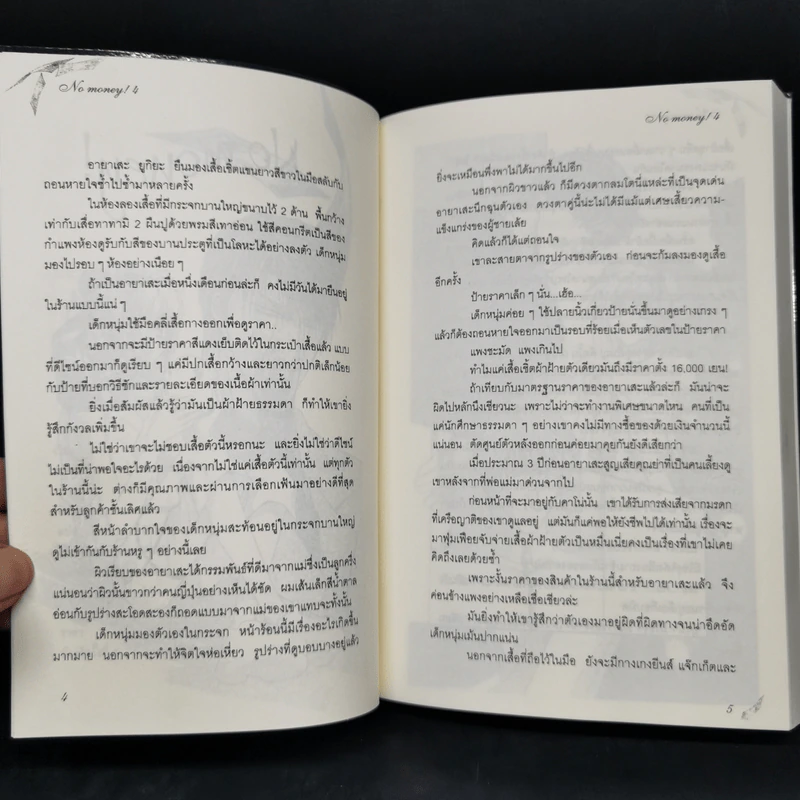 No money! 4
อายาเสะ ยูกิยะ ยืนมองเสื้อเชิ้ตแขนยาวสีขาวในมือสลับกับ
ถอนหายใจซ้ำไปซ้ำมาหลายครั้ง
ในห้องลองเสื้อที่มีกระจกบานใหญ่ขนาบไว้ 2 ด้าน พื้นกว้าง
เท่ากับเสื่อทาทามิ 2 ผืนปูด้วยพรมสีเทาอ่อน ใช้สีคอนกรีตเป็นสีของ
กำแพงห้องดูรับกับสีของบานประตูที่เป็นโลหะได้อย่างลงตัว เด็กหนุ่ม
มองไปรอบ ๆ ห้องอย่างเนือย ๆ
ถ้าเป็นอายาเสะเมื่อหนึ่งเดือนก่อนล่ะก็ คงไม่มีวันได้มายืนอยู่
ในร้านแบบนี้แน่ ๆ
เด็กหนุ่มใช้มือคลี่เสื้อกางออกเพื่อดูราคา..
นอกจากจะมีป้ายราคาสีแดงเย็บติดไว้ในกระเป๋าเสื้อแล้ว แบบ
ที่ดีไซน์ออกมาก็ดูเรียบ ๆ แค่มีปกเสื้อกว้างและยาวกว่าปกติเล็กน้อย
กับป้ายที่บอกวิธีซักและรายละเอียดของเนื้อผ้าเท่านั้น
ยิ่งเมื่อสัมผัสแล้วรู้ว่ามันเป็นผ้าฝ้ายธรรมดา ก็ทำให้เขายิ่ง
รู้สึกกังวลเพิ่มขึ้น
ไม่ใช่ว่าเขาจะไม่ชอบเสื้อตัวนี้หรอกนะ และยิ่งไม่ใช่ว่าดีไซน์
ไม่เป็นที่น่าพอใจอะไรด้วย เนื่องจากไม่ใช่แค่เสื้อตัวนี้เท่านั้น แต่ทุกตัว
ในร้านนี้น่ะ ต่างก็มีคุณภาพและผ่านการเลือกเฟ้นมาอย่างดีที่สุด
สำหรับลูกค้าชั้นเลิศแล้ว
สีหน้าลำบากใจของเด็กหนุ่มสะท้อนอยู่ในกระจกบานใหญ่
ดูไม่เข้ากันกับร้านหรู ๆ อย่างนี้เลย
ผิวเรียบของอายาเสะได้กรรมพันธุ์ที่ดีมาจากแม่ซึ่งเป็นลูกครึ่ง
แน่นอนว่าผิวนั้นขาวกว่าคนญี่ปุ่นอย่างเห็นได้ชัด ผมเส้นเล็กสีน้ำตาล
อ่อนกับรูปร่างสะโอดสะองก็ถอดแบบมาจากแม่ของเขาแทบจะทั้งนั้น
เด็กหนุ่มมองตัวเองในกระจก หน้าร้อนนี้มีเรื่องอะไรเกิดขึ้น
มากมาย นอกจากจะทำให้จิตใจห่อเหี่ยว รูปร่างที่ดูบอบบางอยู่แล้ว
4
No money! 4
ยิ่งจะเหมือนพึ่งพาไม่ได้มากขึ้นไปอีก
นอกจากผิวขาวแล้ว ก็มีดวงตากลมโตนี่แหล่ะที่เป็นจุดเด่น
อายาเสะนึกฉุนตัวเอง ดวงตาคู่นี้น่ะไม่ได้มีแม้แต่เศษเสี้ยวความ-
แข็งแกร่งของผู้ชายเล้ย
คิดแล้วก็ได้แต่ถอนใจ
เขาละสายตาจากรูปร่างของตัวเอง ก่อนจะก้มลงมองดูเสื้อ
อีกครั้ง
ป้ายราคาเล็ก ๆ นั่น...เฮ้อ...
เด็กหนุ่มค่อย ๆ ใช้ปลายนิ้วเกี่ยวป้ายนั่นขึ้นมาดูอย่างเกรง ๆ
แล้วก็ต้องถอนหายใจออกมาเป็นรอบที่ร้อยเมื่อเห็นตัวเลขในป้ายราคา
แพงชะมัด แพงเกินไป
ทำไมแค่เสื้อเชิ้ตผ้าฝ้ายตัวเดียวมันถึงมีราคาตั้ง 16,000 เยน!
ถ้าเทียบกับมาตรฐานราคาของอายาเสะแล้วล่ะก็ มันน่าจะ
ผิดไปหลักนึงเชียวนะ เพราะไม่ว่าจะทำงานพิเศษขนาดไหน คนที่เป็น
แค่นักศึกษาธรรมดา ๆ อย่างเขาคงไม่มีทางซื้อของด้วยเงินจำนวนนี้
แน่นอน ตัดศูนย์ตัวหลังออกก่อนค่อยมาคุยกันยังดีเสียกว่า
เมื่อประมาณ 3 ปีก่อนอายาเสะสูญเสียคุณย่าที่เป็นคนเลี้ยงดู
เขาหลังจากที่พ่อแม่มาด่วนจากไป
ก่อนหน้าที่จะมาอยู่กับคาโน่นั้น เขาได้รับการส่งเสียจากมรดก
ที่เครือญาติของเขาดูแลอยู่ แต่มันก็แค่พอให้ยังชีพไปได้เท่านั้น เรื่องจะ
มาฟุ่มเฟือยจับจ่ายเสื้อผ้าฝ้ายตัวเป็นหมื่นเนี่ยคงเป็นเรื่องที่เขาไม่เคย
คิดถึงเลยด้วยซ้ำ
เพราะงั้นราคาของสินค้าในร้านนี้สำหรับอายาเสะแล้ว จึง
ค่อนข้างแพงอย่างเหลือเชื่อเชียวล่ะ
มันยิ่งทำให้เขารู้สึกว่าตัวเองมาอยู่ผิดที่ผิดทางจนน่าอึดอัด
เด็กหนุ่มเม้นปากแน่น
นอกจากเสื้อที่ถือไว้ในมือ ยังจะมีกางเกงยีนส์ แจ๊กเก็ตและ
5